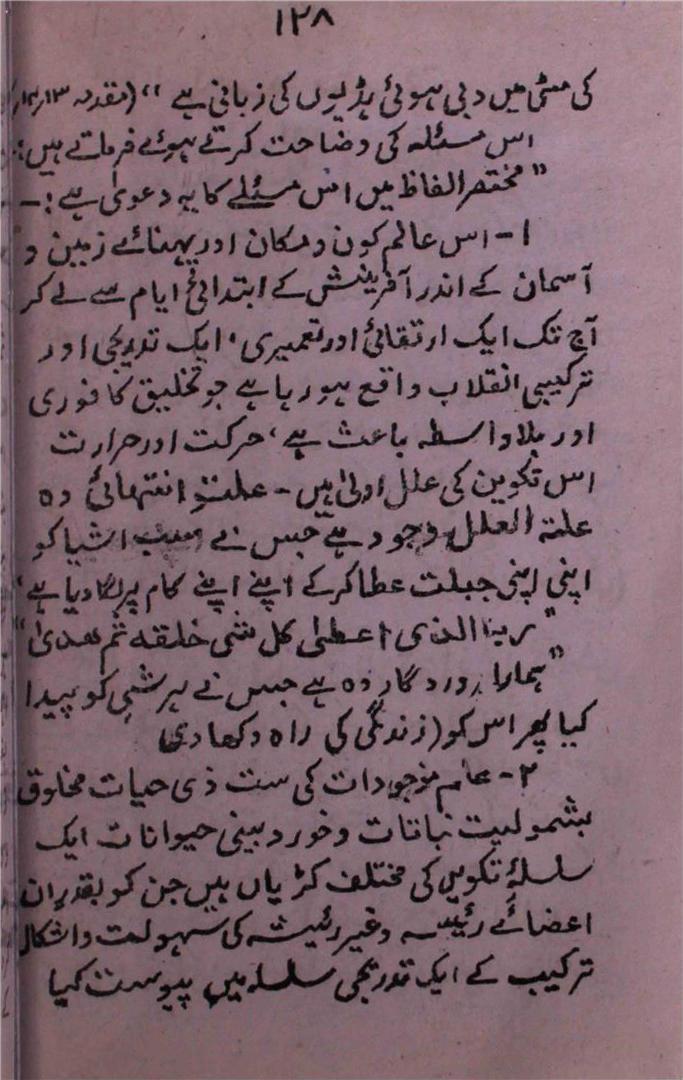 ۱۲۸
کی مٹی میں دبی ہوئی ہڈیوں کی زبانی ہے“ (مقدمہ ۱۳،
اس مسئلہ کی وضاحت کرتے ہوئے فرماتے ہیں:
”مختصر الفاظ میں اس مسئلے کا یہ دعویٰ ہے:-
۱- اس عالم کون و مکان اور پہنائے زمین و
آسمان کے اندر آفرینش کے ابتدائی ایام سے لے کر
آج تک ایک ارتقائی اور تعمیری، ایک تدریجی اور
ترکیبی انقلاب واقع ہو رہا ہے جو تخلیق کا فوری
اور بلاواسطہ باعث ہے، حرکت اور حرارت
اس تکوین کی علل اولیٰ ہیں۔ علتِ انتہائی وہ
علتہ العلل وجود ہے جس نے سب اشیا کو
اپنی اپنی جبلت عطا کرکے اپنے اپنے کام پر لگا دیا ہے،
”ربنا الذی اعطیٰ کل شی خلقہ ثم ھدیٰ“
”ہمارا پروردگار وہ ہے جس نے ہر شی کو پیدا
کیا پھر اس کو (زندگی کی راہ دکھا دی)
۲- عام موجودات کی ست ذی حیات مخلوق
بشمولیت نباتات و خوردبینی حیوانات ایک
سلسلۂ تکوین کی مختلف کڑیاں ہیں جن کو بقدر ان
اعضائے رئیسہ و غیر رئیسہ کی سہولت و اشکال
ترکیب کے ایک تدریجی سلسلہ میں پیوست کیا